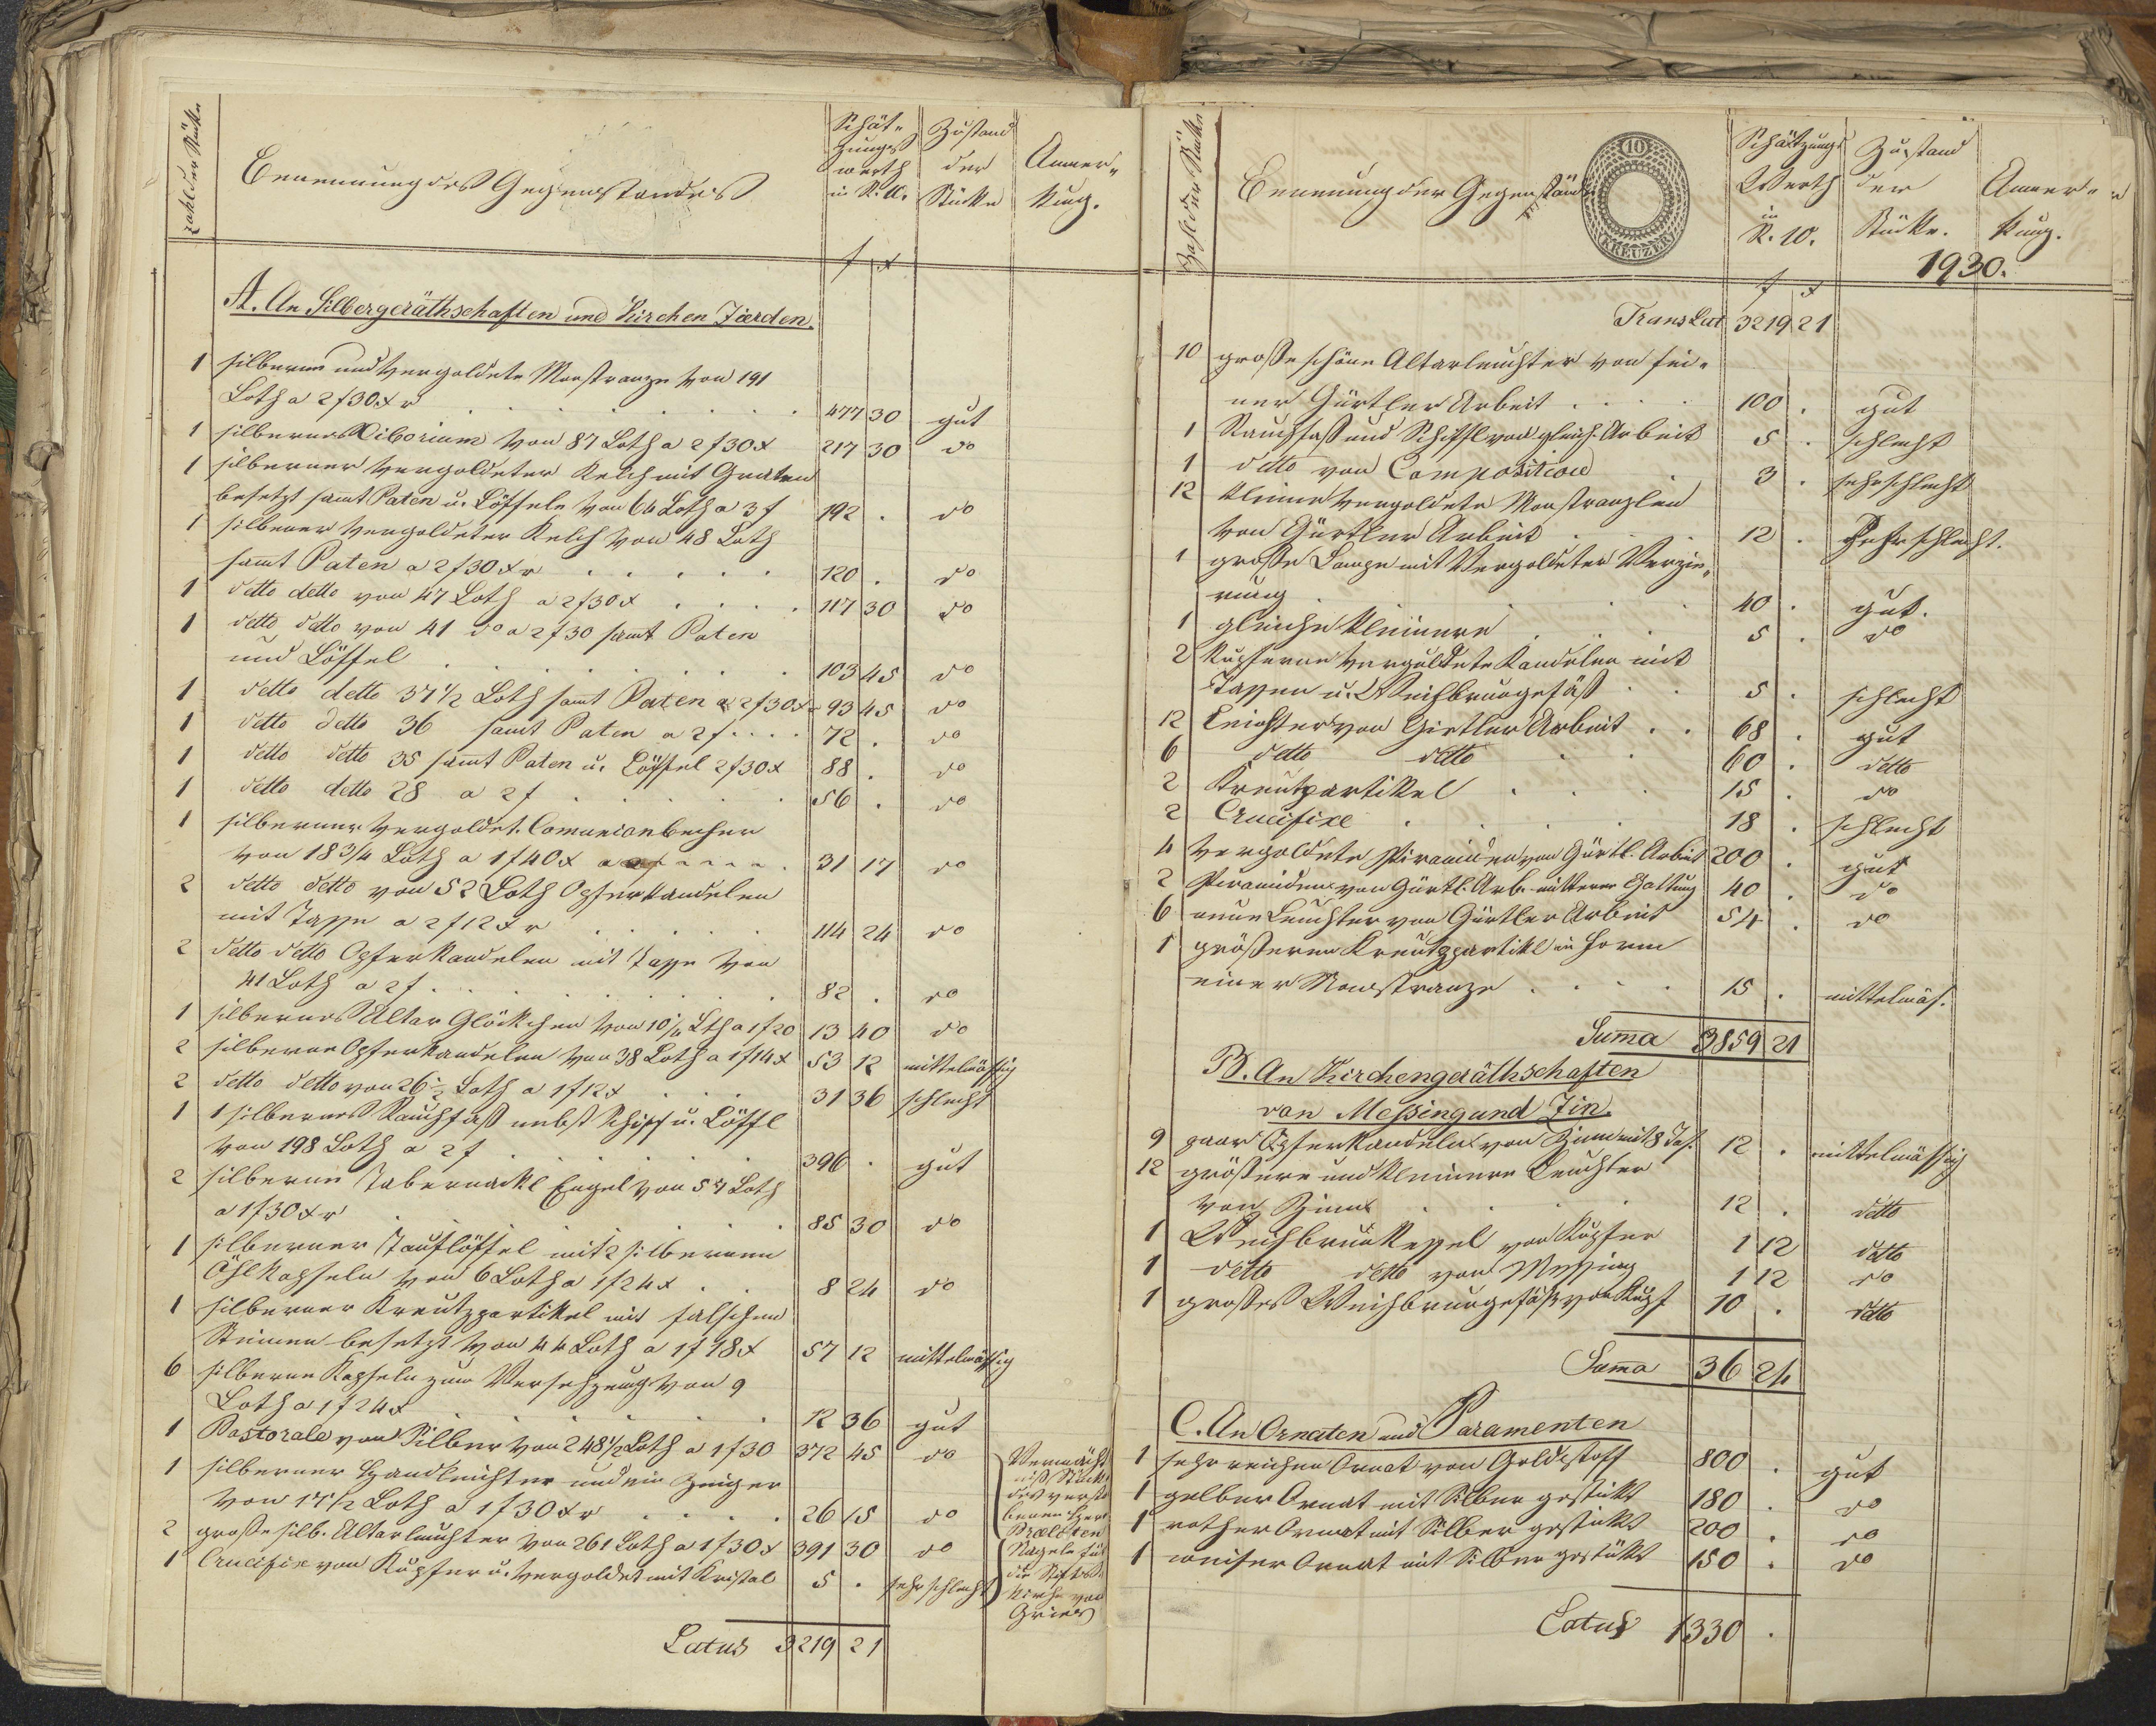 Zahl der Stüke
Benennung des Gegenstandes
Schät-
zungs
werth
in R. W.
Zustand
der
Stücke
Anmer-
kung.
f x
A. An Silbergeräthschaften und Kirchen Zierden.
1 silberne und vergoldete Monstranze von 191
Loth a 2 f 30 xr 477 30 gut
1 silbernes Ciborium von 87 Loth a 2 f 30 x 217 30 do
1 silberner vergoldeter Kelch mit Granaten
besetzt samt Paten u. Löffele von 64 Loth a 3 f 192 . do
1 silberner vergoldeter Kelch von 48 Loth
samt Paten a 2 f 30 xr 120 . do
1 detto detto von 47 Loth a 2 f 30 x 117 30 do
1 detto detto von 41 do a 2 f 30 samt Paten
und Löffel 103 45 do
1 detto detto 37 1/2 Loth samt Paten a 2 f 30 x 93 45 do
1 detto detto 36 samt Paten a 2 f 72 . do
1 detto detto 35 samt Paten u. Löffel 2 f 30 x 88 . do
1 detto detto 28 a 2 f 56 . do
1 silberner vergoldet. Comunionbecher
von 18 3/4 Loth a 1 f 40 x 31 17 do
2 detto detto von 52 Loth Opferkandelen
mit Tasse a 2 f 12 xr 114 24 do
2 detto detto Opferkandelen mit Tasse von
41 Loth a 2 f 82 . do
1 silbernes Altar Glöckchen von 10 1/4 Lth a 1 f 20 13 40 do
2 silberne Opferkandelen von 38 Loth a 1 f 14 x 53 12 mittelmässig
2 detto detto von 26 1/2 Loth a 1 f 12 x 31 36 schlecht
1 1 silbernes Rauchfass nebst Schiff u. Löffl
von 198 Loth a 2 f 396 . gut
2 silberne Tabernackl Engel von 57 Loth
a 1 f 30 xr 85 30 do
1 silberner Tauflöffel mit 2 silbernen
Öhlkapseln von 6 Loth a 1 f 24 x 8 24 do
1 silberner Kreutzpartikel mit falschen
Steinen besetzt von 44 Loth a 1 f 18 x 57 12 mittelmässig
6 silberne Kapseln zum Versehzeug von 9
Loth a 1 f 24 x 12 36 gut
1 Pastorale von Silber von 248 1/2 Loth a 1 f 30 372 45 do
1 silberner Handleuchter und ein Zeiger
von 17 1/2 Loth a 1 f 30 xr 26 15 do
2 große silb. Altarleuchter von 261 Loth a 1 f 30 x 391 30 do
1 Crucifix von Kupfer u. vergoldet mit Kristal 5 . sehr schlecht
Vermächt
niß Stück
des verstor
benen Herrn
Prælaten
Nagele für
die Stifts
kirche von
Gries
Latus 3219 21
Zahl der Stücke
Benennung der Gegenstände
10
KREUZER
Schätzungs
Werth
in
R. W.
Zustand
der
Stücke.
Anmer-
kung.
1930.
f x
Trans Lat 3219 21
10 große schöne Altarleuchter von fei-
ner Gürtler Arbeit 100 . gut
1 Rauchfass und Schiffl von gleich. Arbeit 5 . schlecht
1 detto von Composition 3 . sehr schlecht
12 kleine vergoldete Monstranzlen
von Gürtler Arbeit 12 . Sehr schlecht.
1 große Lampe mit Vergoldeter Verzie-
rung 40 . gut.
1 gleiche kleinere 5 . do
2 kupferne vergoldete Kandelen mit
Tassen u. Weichbrungefäß 5 . schlecht
12 Leichter von Girtler Arbeit 68 . gut
6 detto detto 60 . detto
2 Kreutzpartikel 15 . do
2 Crucifixe 18 . schlecht
4 vergoldete Piramiden von Gürtl. Arbeit 200 . gut
2 Piramiden von Gürtl. Arb. mitterer Gattung 40 . do
6 neue Leuchter von Gürtler Arbeit 54 . do
1 größeren Kreutzpartikl in Form
einer Monstranze 15 . mittelmäs.
Suma 3859 21
B. An Kirchengeräthschaften
von Messing und Zin.
9 paar Opferkandeln von Zinn mit 8 Tas. 12 . mittelmässig
12 größere und kleinere Leuchter
von Zinn 12 . detto
1 Weichbrunkessel von Kupfer 1 12 detto
1 detto detto von Messing 1 12 do
1 großes Weichbrungefäß von Kupf 10 . detto
Suma 36 24
C. An Ornaten und Paramenten
1 sehr reicher Ornat von Goldstoff 800 . gut
1 gelber Ornat mit Silber gestickt 180 . do
1 rother Ornat mit Silber gestickt 200 . do
1 weiser Ornat mit Silber gestückt 150 . do
Latus 1330 .